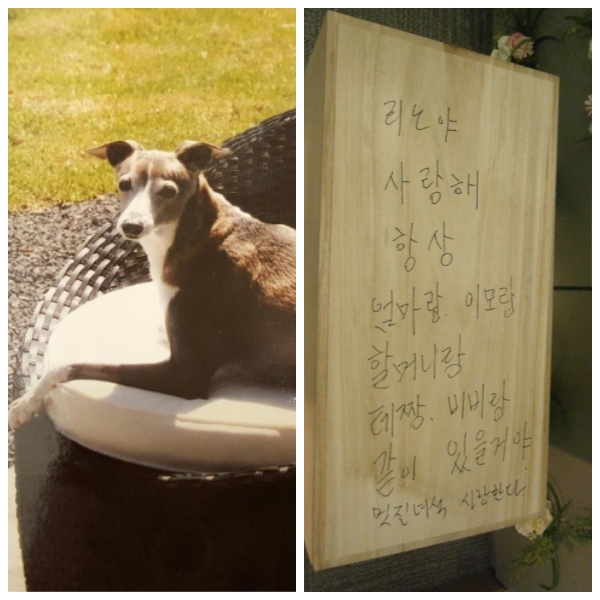 리노야
사랑해
항상
엄마랑. 이모랑
할머니랑
테짱. 비비랑
같이 있을거야
멋진녀석 사랑한다.